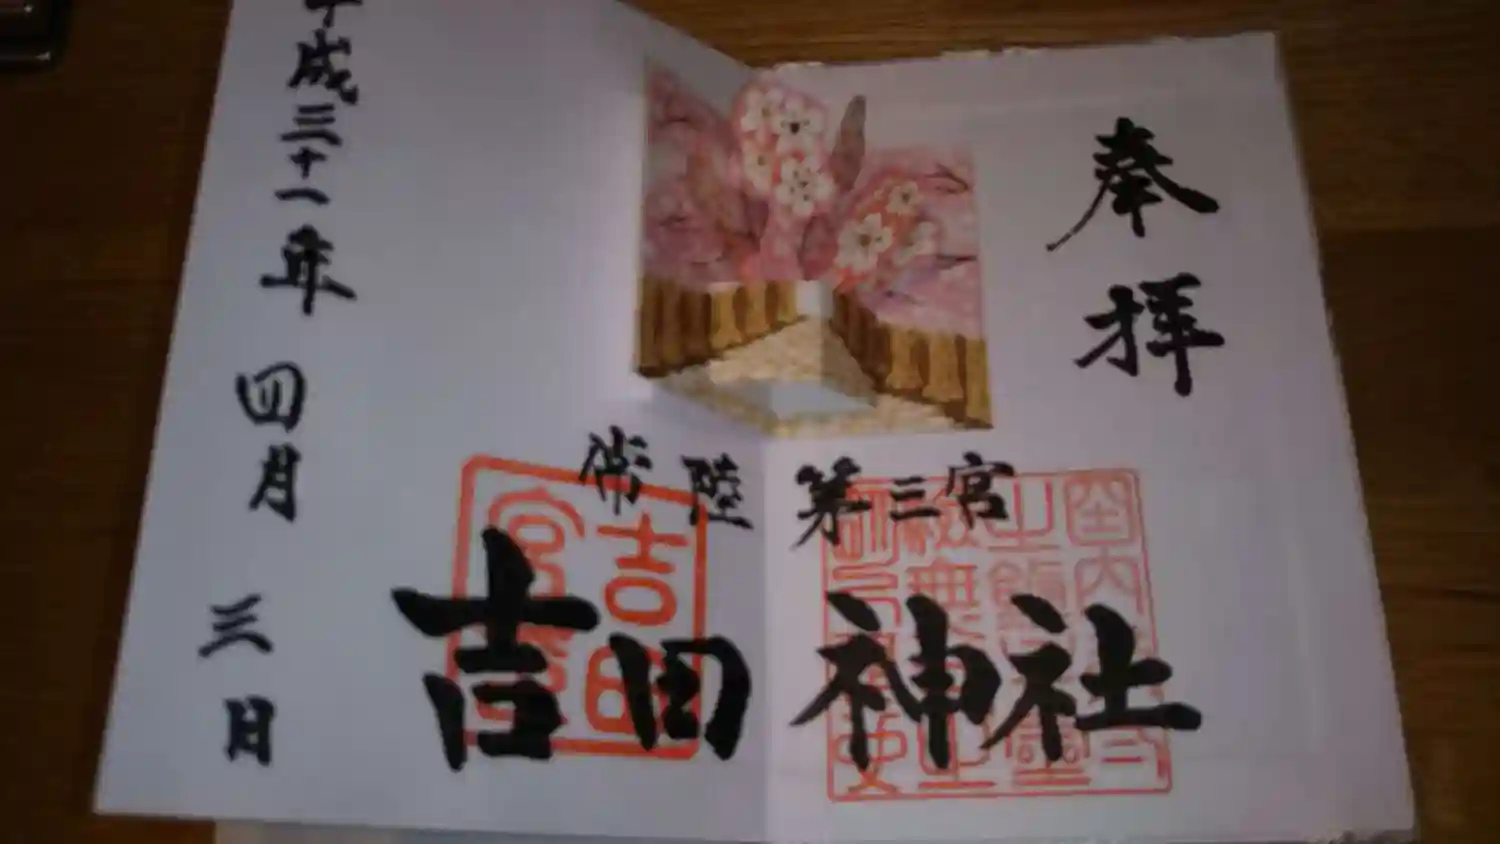 奉拝
常陸第三宮
吉田神社
平成三十一年四月三日
吉田
宮